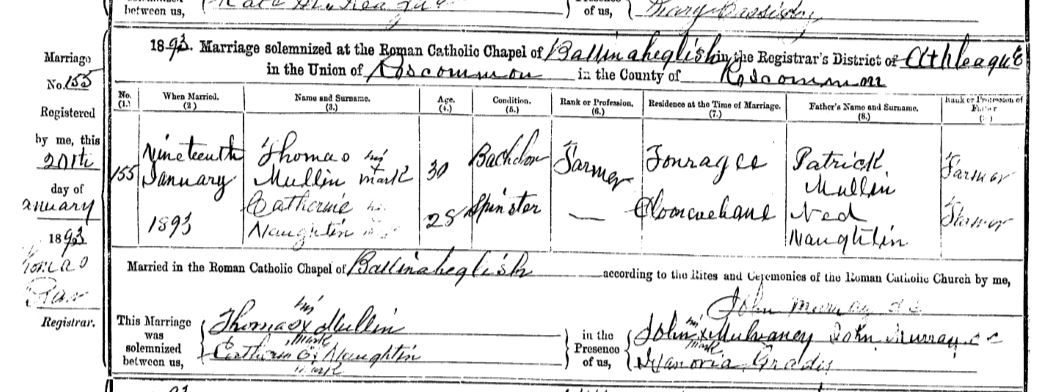 between us,
of us,
Mary Cassidy
Marriage
No. 155
Registered
by me, this
20th
day of
January
1893
Thomas
Registrar.
1893. Marriage solemnized at the Roman Catholic Chapel of Ballinaheglish in the Registrar's District of Athleague
in the Union of Roscommon in the County of Roscommon
No. When Married. Name and Surname. Age. Condition. Rank or Profession. Residence at the Time of Marriage. Father's Name and Surname. Rank or Profession of Father
(1.) (2.) (3.) (4.) (5.) (6.) (7.) (8.)
155 Nineteenth Thomas his 30 Bachelor Farmer Patrick Farmer
January Mullin mark Mullin
Catherine 28 Spinster — Ned Farmer
1893 Naughtin Naughtin
Married in the Roman Catholic Chapel of Ballinaheglish according to the Rites and Ceremonies of the Roman Catholic Church by me,
John Murray
This Marriage Thomas X Mullin in the John X Mulvaney John Murray CC
was his mark Presence his mark
solemnized Catherine X Naughtin of us, Hanoria
between us, mark